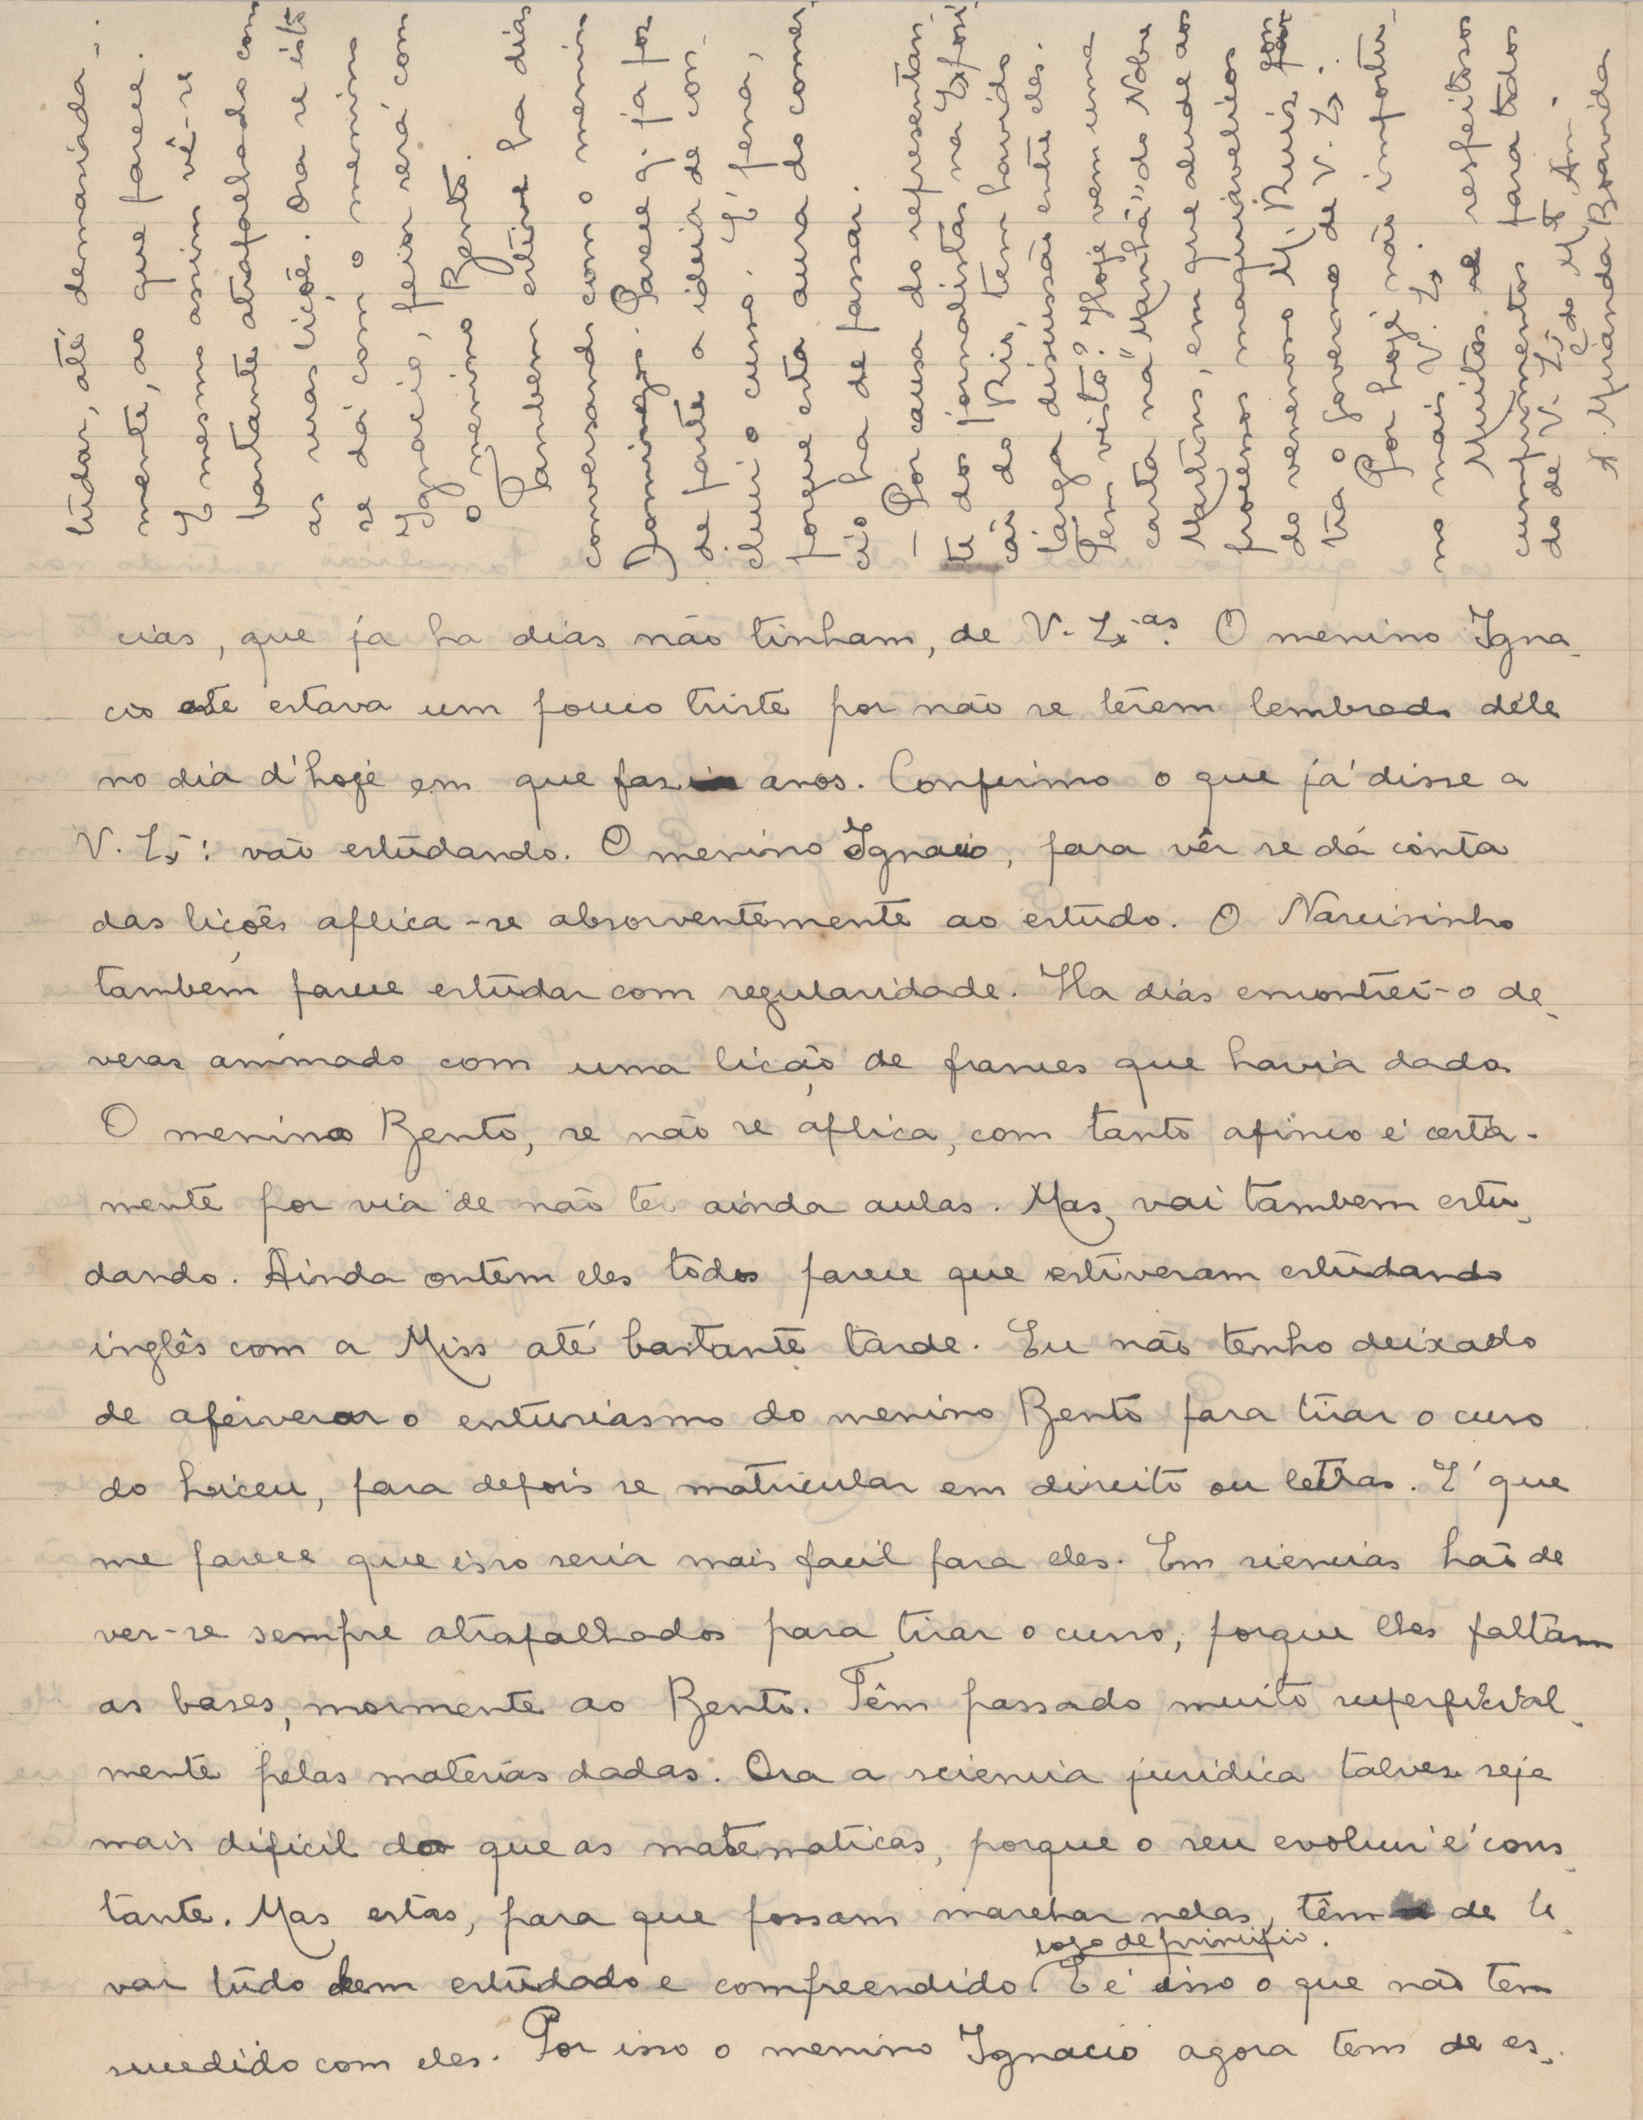 cias, que ja ha dias não tinham, de V. Ex.as. O menino Igna-
cio ate estava um pouco triste por não se têrem lembrado dêle
no dia d'hoje em que fas anos. Confirmo o que já disse a
V. Ex.: vão estudando. O menino Ignacio, para vêr se dá conta
das lições aplica-se absorventemente ao estudo. O Narcisinho
tambem parece estudar com regularidade. Ha dias encontrei-o de-
veras animado com uma lição de frances que havia dado.
O menino Bento, se não se aplica, com tanto afinco é certa-
mente por via de não ter ainda aulas. Mas, vai tambem estu-
dando. Ainda ontem eles todos parece que estiveram estudando
inglês com a Miss até bastante tarde. Eu não tenho deixado
de afervorar o entusiasmo do menino Bento para tirar o curso
do Liceu, para depois se matricular em direito ou letras. É que
me parece que isso seria mais facil para eles. Em siencias hão de
ver-se sempre atrapalhados para tirar o curso, porque lhes faltam
as bases, mormente ao Bento. Têm passado muito superficial-
mente pelas materias dadas. Ora a sciencia juridica talvez seje
mais dificil do que as matematicas, porque o seu evoluir é cons-
tante. Mas estas, para que possam marchar nelas, têm de le-
logo de principio.
var tudo bem estudado e compreendido. E é isso o que não tem
sucedido com eles. Por isso o menino Ignacio agora tem de es-
tudar, até demasiada-
mente, ao que parece.
E mesmo assim vê-se
bastante atrapalhado com
as suas lições. Ora se isto
se dá com o menino
Ignacio, peior será com
o menino Bento.
Tambem estive ha dias
conversando com o menino
Domingos. Parece q. já pos
de parte a ideia de con-
cluir o curso. É pena,
porque esta aura do comer-
cio ha de passar.
— Por causa do representan-
te dos jornalistas na Exposi-
cão do Rio, tem havido
larga discussão entre eles.
Tem visto? Hoje vem uma
carta na "Manhã" do Nobre
Martins, em que alude aos
processos maquiavelicos
do venenoso M. Ruis con-
tra o governo de V. Ex.
Por hoje não importu-
no mais V. Ex.
Muitos respeitosos
cumprimentos para todos
do de V. Ex.
C.do M.to Am.
A. Miranda Boavida